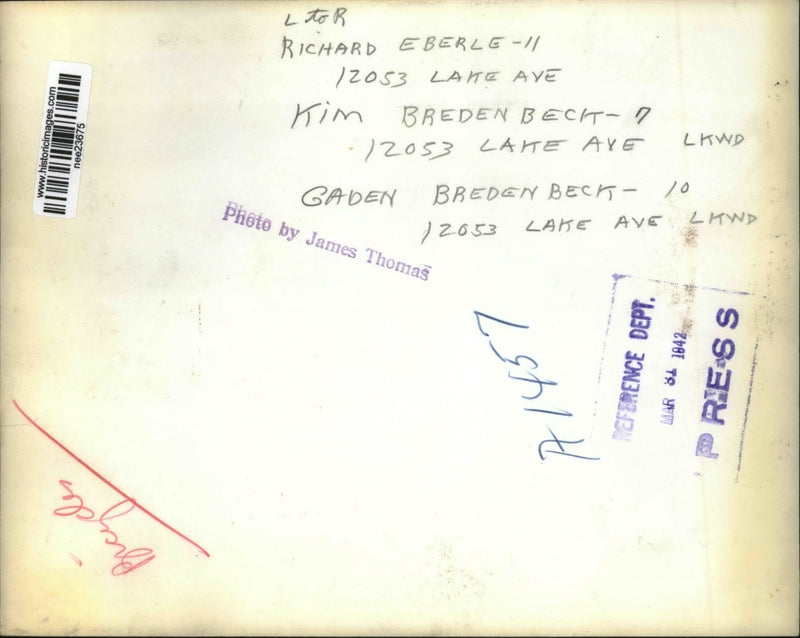 L to R
RICHARD EBERLE-11
12053 LAKE AVE
KIM BREDENBECK-7
12053 LAKE AVE LKWD
GADEN BREDENBECK-10
12053 LAKE AVE LKWD
Photo by James Thomas
www.historicimages.com
nee23675
REFERENCE DEPT.
MAR 31 1942
PRESS
A1457
Bicycles